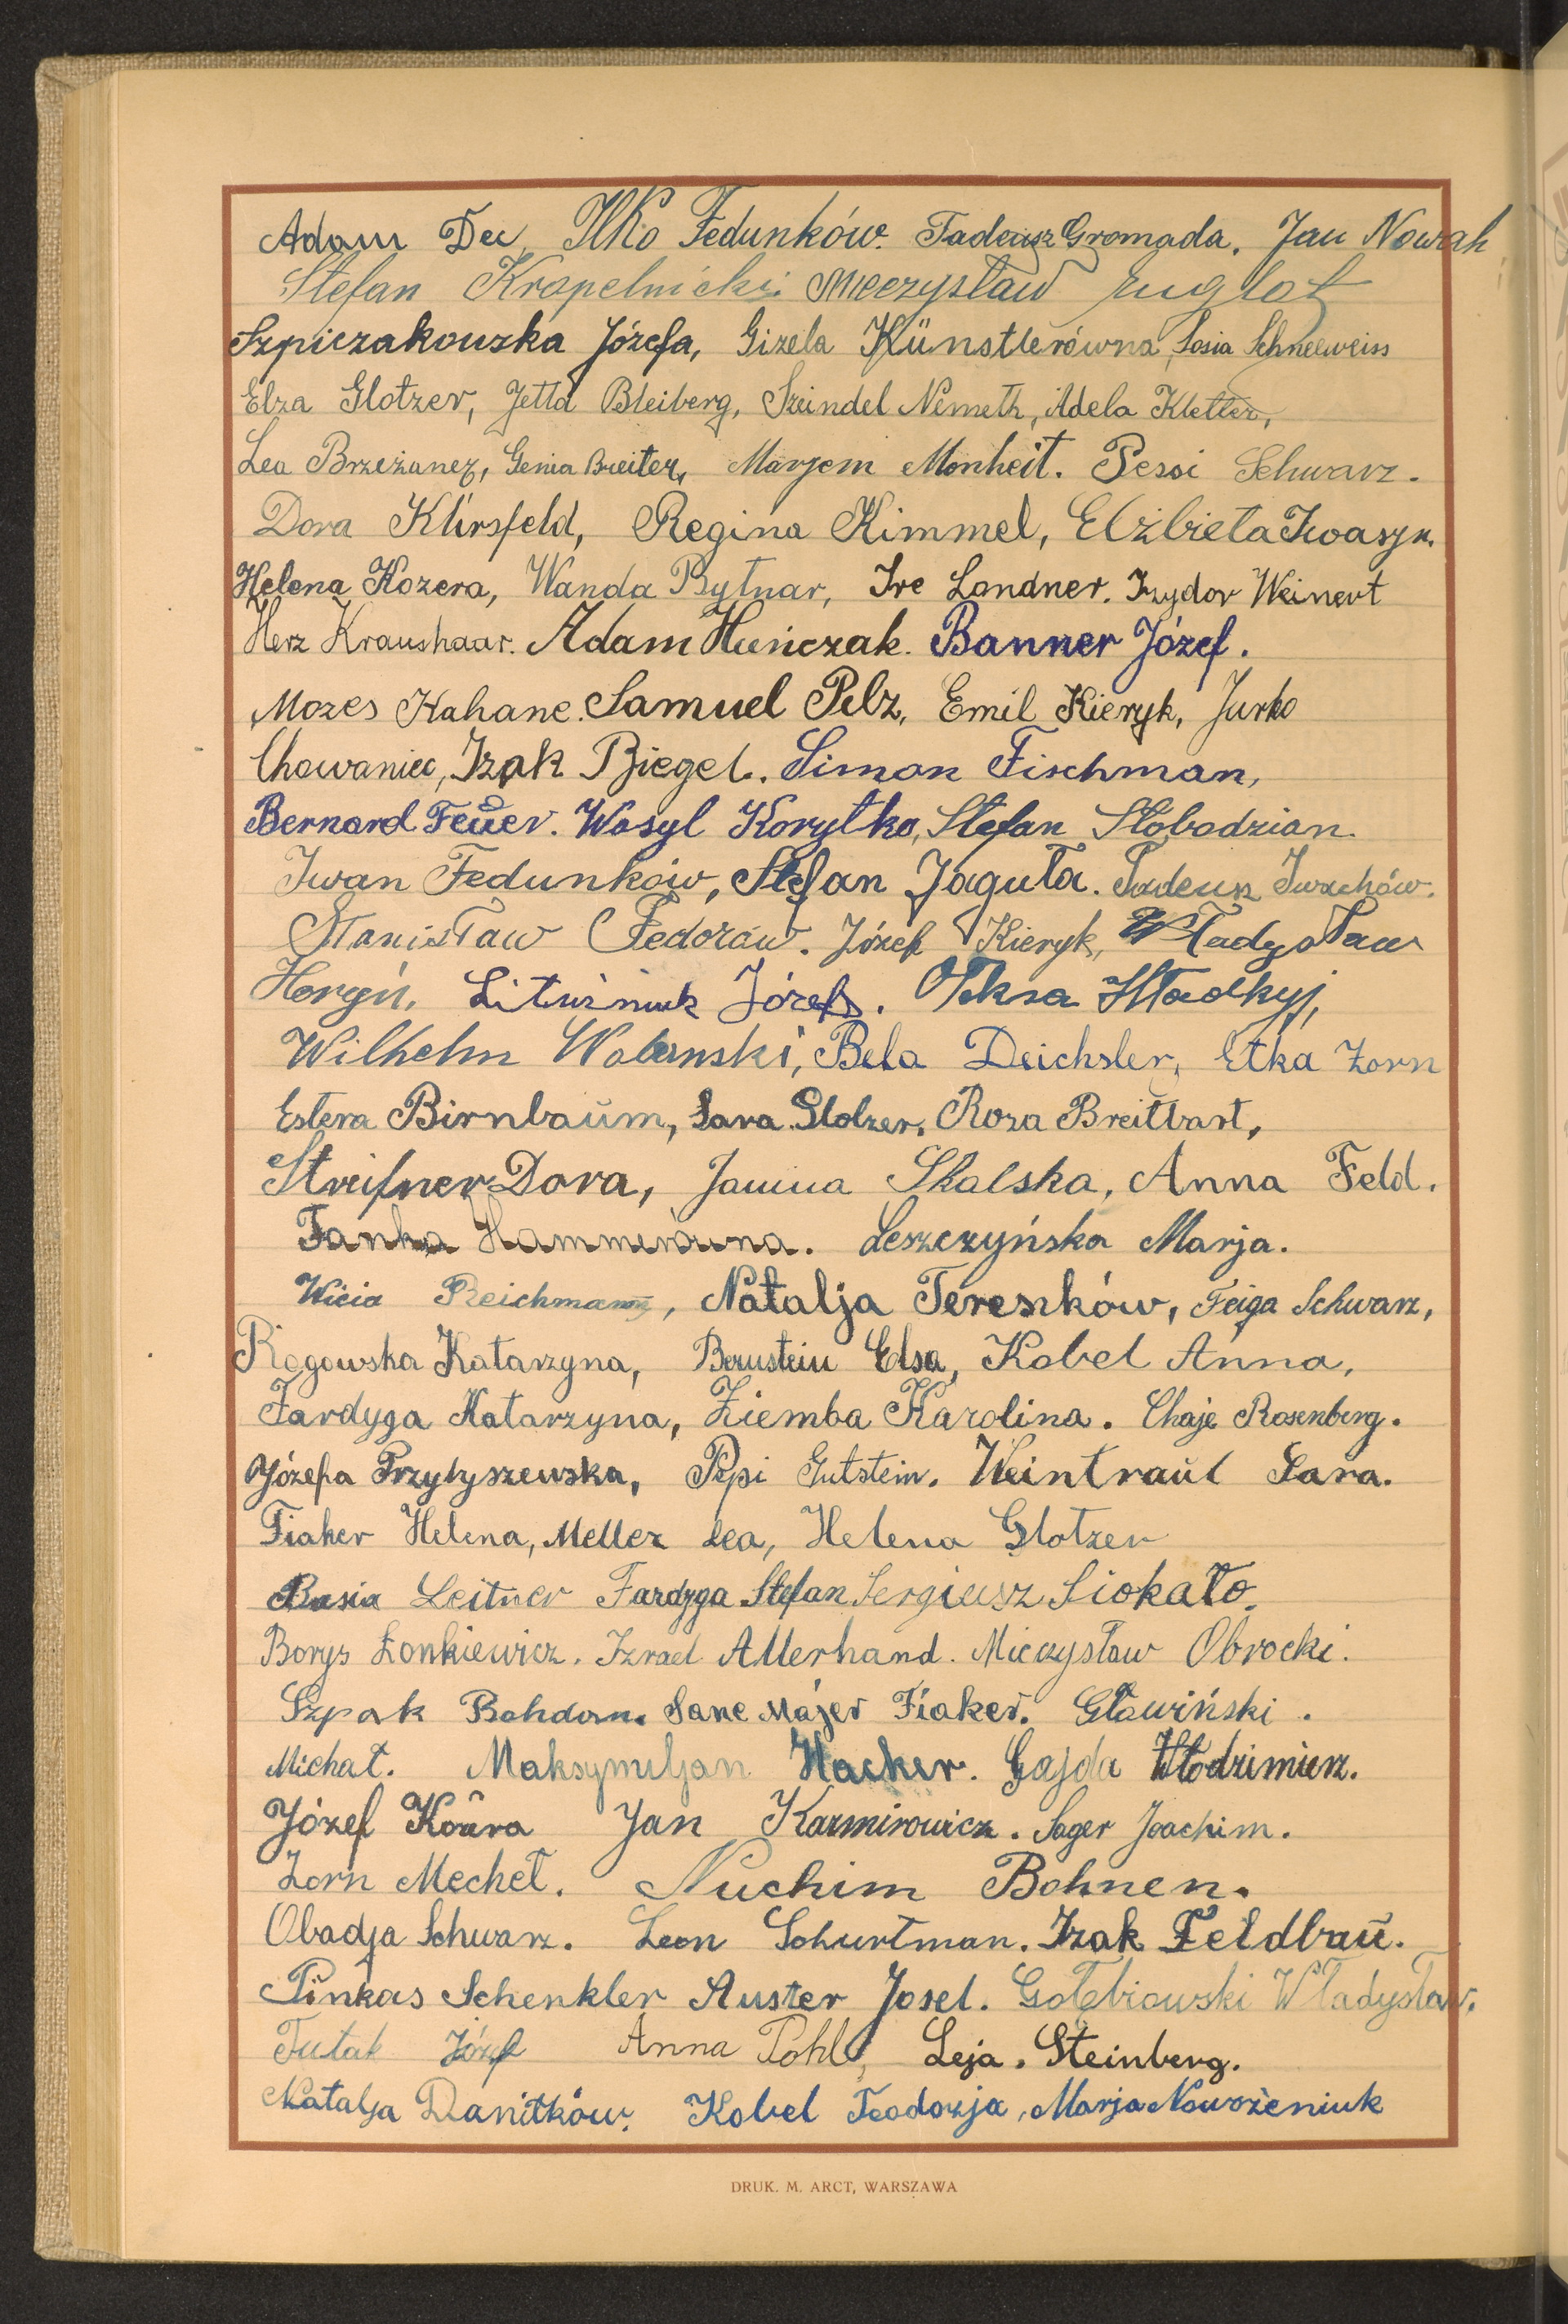 Adam Dec, Ilko Fedunków. Tadeusz Gromada. Jan Nowak
Stefan Krapelnicki Mieczysław
Szpiczakouska Józefa, Gizela Künstlerówna, Sosia Schneeweiss
Elza Glotzer, Jetta Bleiberg, Szeindel Nemeth, Adela Kletter,
Lea Brzeżanez, Genia Breiter, Marjem Monheit. Pessi Schwarz.
Dora Klirsfeld, Regina Kimmel, Elżbieta Iwaszn.
Helena Kozera, Wanda Bytnar, Ire Landner. Izydor Weinert
Herz Kraushaar. Adam Huńczak. Banner Józef.
Mozes Kahane. Samuel Pelz, Emil Kieryk, Jurko
Chowaniec, Izak Biegel. Simon Fischman,
Bernard Feuer. Wasyl Korytko, Stefan Słobodzian.
Iwan Fedunków, Stefan Jaguła. Tadeusz Iwachów.
Stanisław Fedorów. Józef Kieryk, Władysław
Horyń, Litwiniuk Józef. Ołeksa Hładkyj,
Wilhelm Wolanski, Bela Deichsler, Etka Zorn
Estera Birnbaum, Sara Glotzer. Roza Breitbart,
Streifner Dora, Janina Skalska, Anna Feld.
Fanka Hammerówna. Leszczyńska Marja.
Wicia Reichmann, Natalja Tereszków, Feiga Schwarz,
Rogowska Katarzyna, Bernstein Elsa, Kobel Anna,
Fardyga Katarzyna, Ziemba Karolina. Chaje Rosenberg.
Józefa Przybyszewska, Pepi Gutstein. Weintraub Sara.
Fiaker Helena, Meller Lea, Helena Glotzer
Basia Leitner Fardyga Stefan Sergiusz Siokało.
Borys Łonkiewicz. Izrael Allerhand. Mieczysław Obrocki.
Szpak Bohdan. Sane Majer Fiaker. Gławiński.
Michał. Maksymiljan Hacker. Gajda Włodzimierz.
Józef Koŭra Jan Kazmirowicz. Sager Joachim.
Zorn Mechel. Nuchim Bohnen.
Obadja Schwarz. Leon Schurtman. Izak Feldbau.
Pinkas Schenkler Auster Josel. Gołębiowski Władysław.
Tutak Józef Anna Pohl, Leja. Steinberg.
Natalja Daniłków. Kobel Teodozja, Marja Nowożeniuk
DRUK. M. ARCT, WARSZAWA